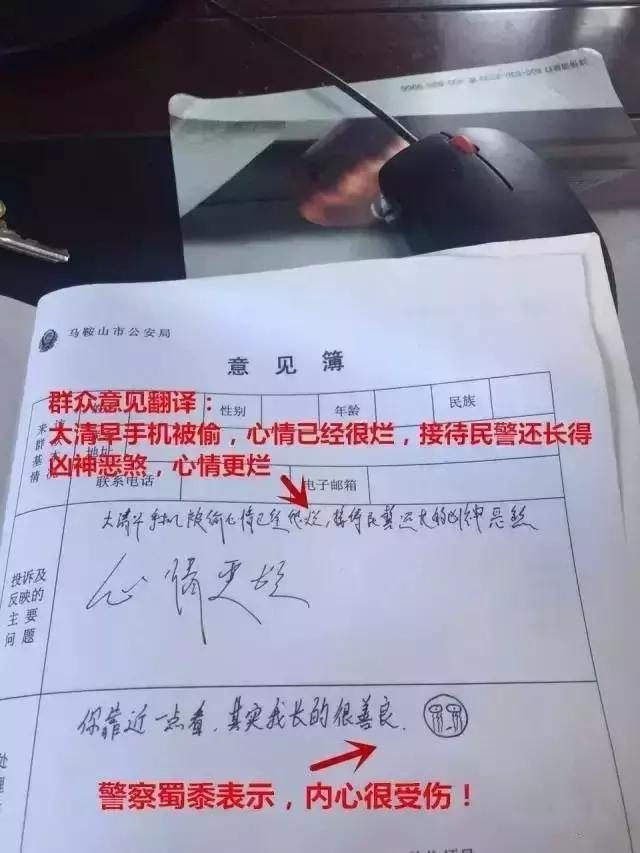 马鞍山市公安局
意见簿
群众意见翻译：
大清早手机被偷，心情已经很烂，接待民警还长得
凶神恶煞，心情更烂
性别
年龄
民族
地址
联系电话
电子邮箱
大清早手机被偷心情已经很烂，接待民警还长的凶神恶煞
心情更烂
投诉及
反映的
主要
问题
你靠近一点看，其实我长的很善良
警察蜀黍表示，内心很受伤！